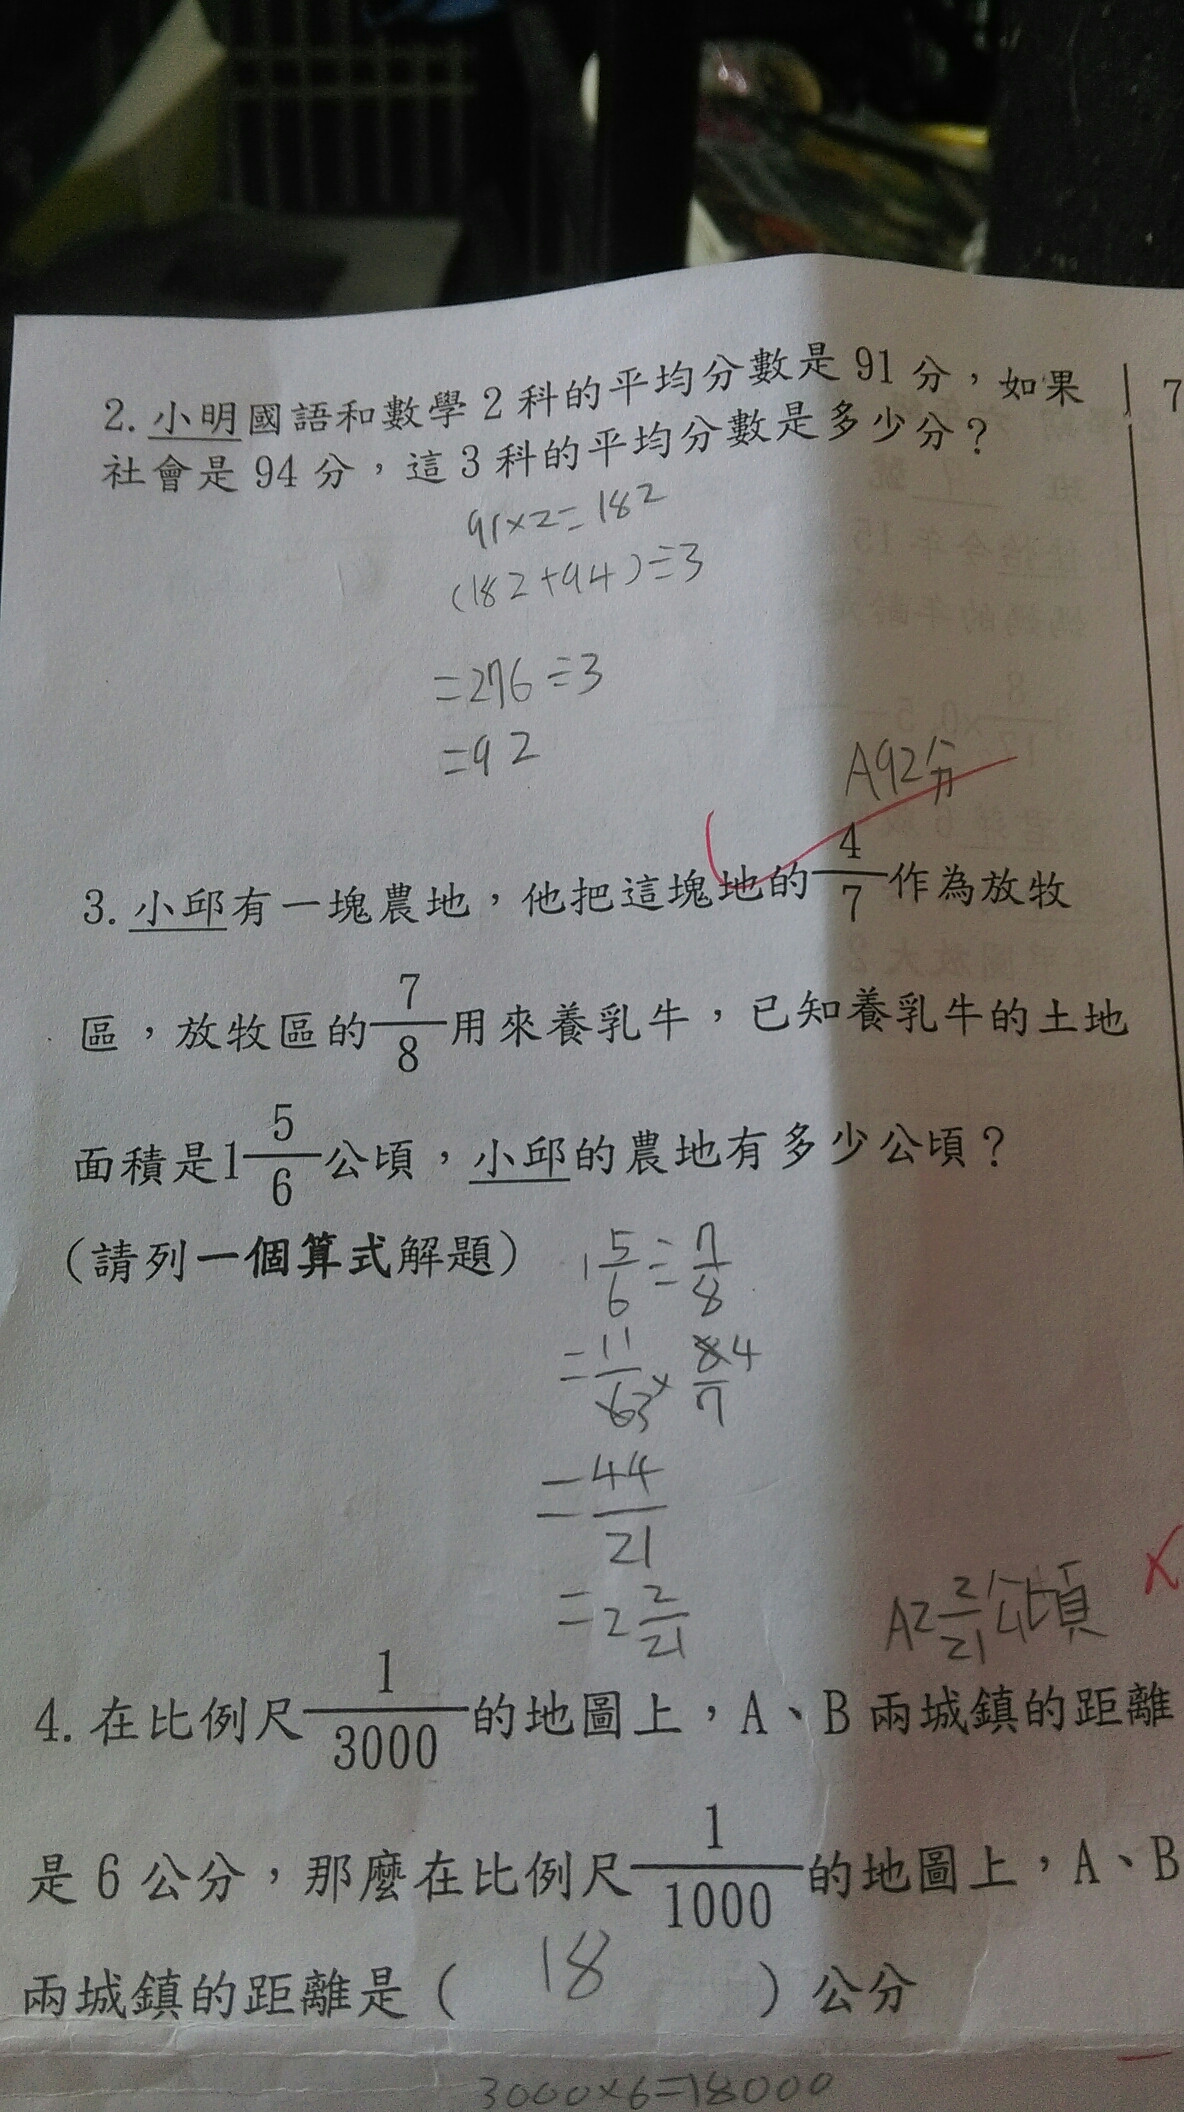 2. 小明國語和數學2科的平均分數是91分，如果
社會是94分，這3科的平均分數是多少分？
91×2=182
(182+94)÷3
=276÷3
=92
A92分
3. 小邱有一塊農地，他把這塊地的4/7作為放牧
區，放牧區的7/8用來養乳牛，已知養乳牛的土地
面積是1 5/6公頃，小邱的農地有多少公頃？
（請列一個算式解題）
1 5/6÷7/8
=11/63×84/7
=44/21
=2 2/21
A2 2/21公頃
4. 在比例尺1/3000的地圖上，A、B兩城鎮的距離
是6公分，那麼在比例尺1/1000的地圖上，A、B
兩城鎮的距離是（ 18 ）公分
3000×6=18000
7